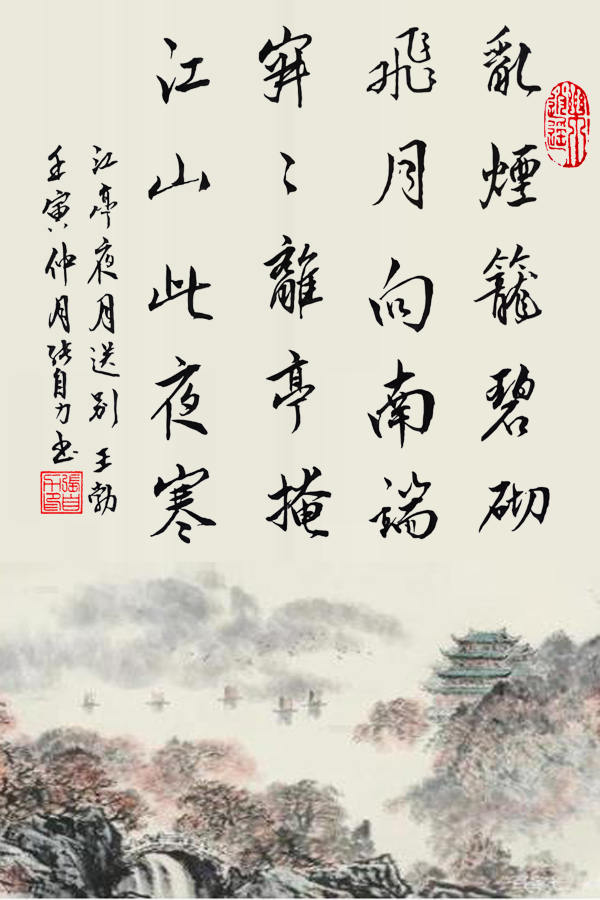 亂煙籠碧砌
飛月向南端
寂〻離亭掩
江山此夜寒
江亭夜月送别 王勃
壬寅仲月张自力书